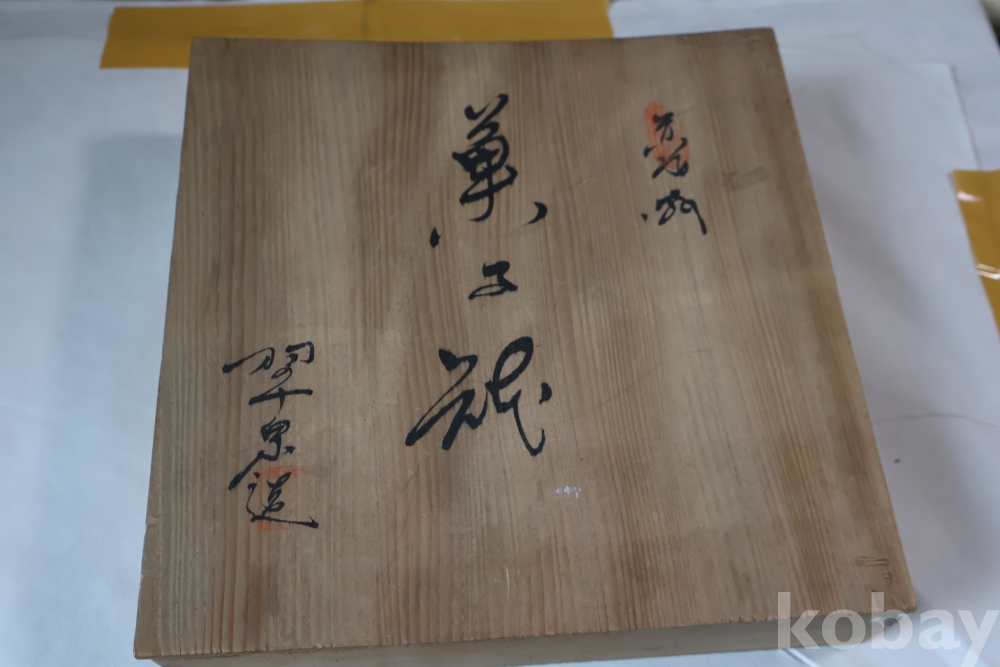 菓子鉢
翠泉造
kobay